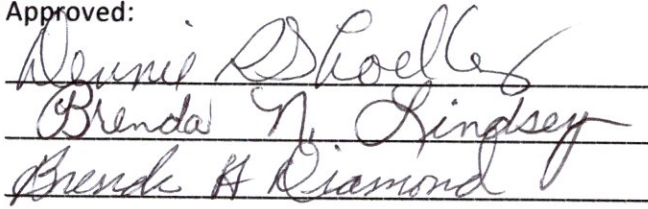 Approved:
Dennie R Shoelles
Brenda N. Lindsey
Brenda H Diamond